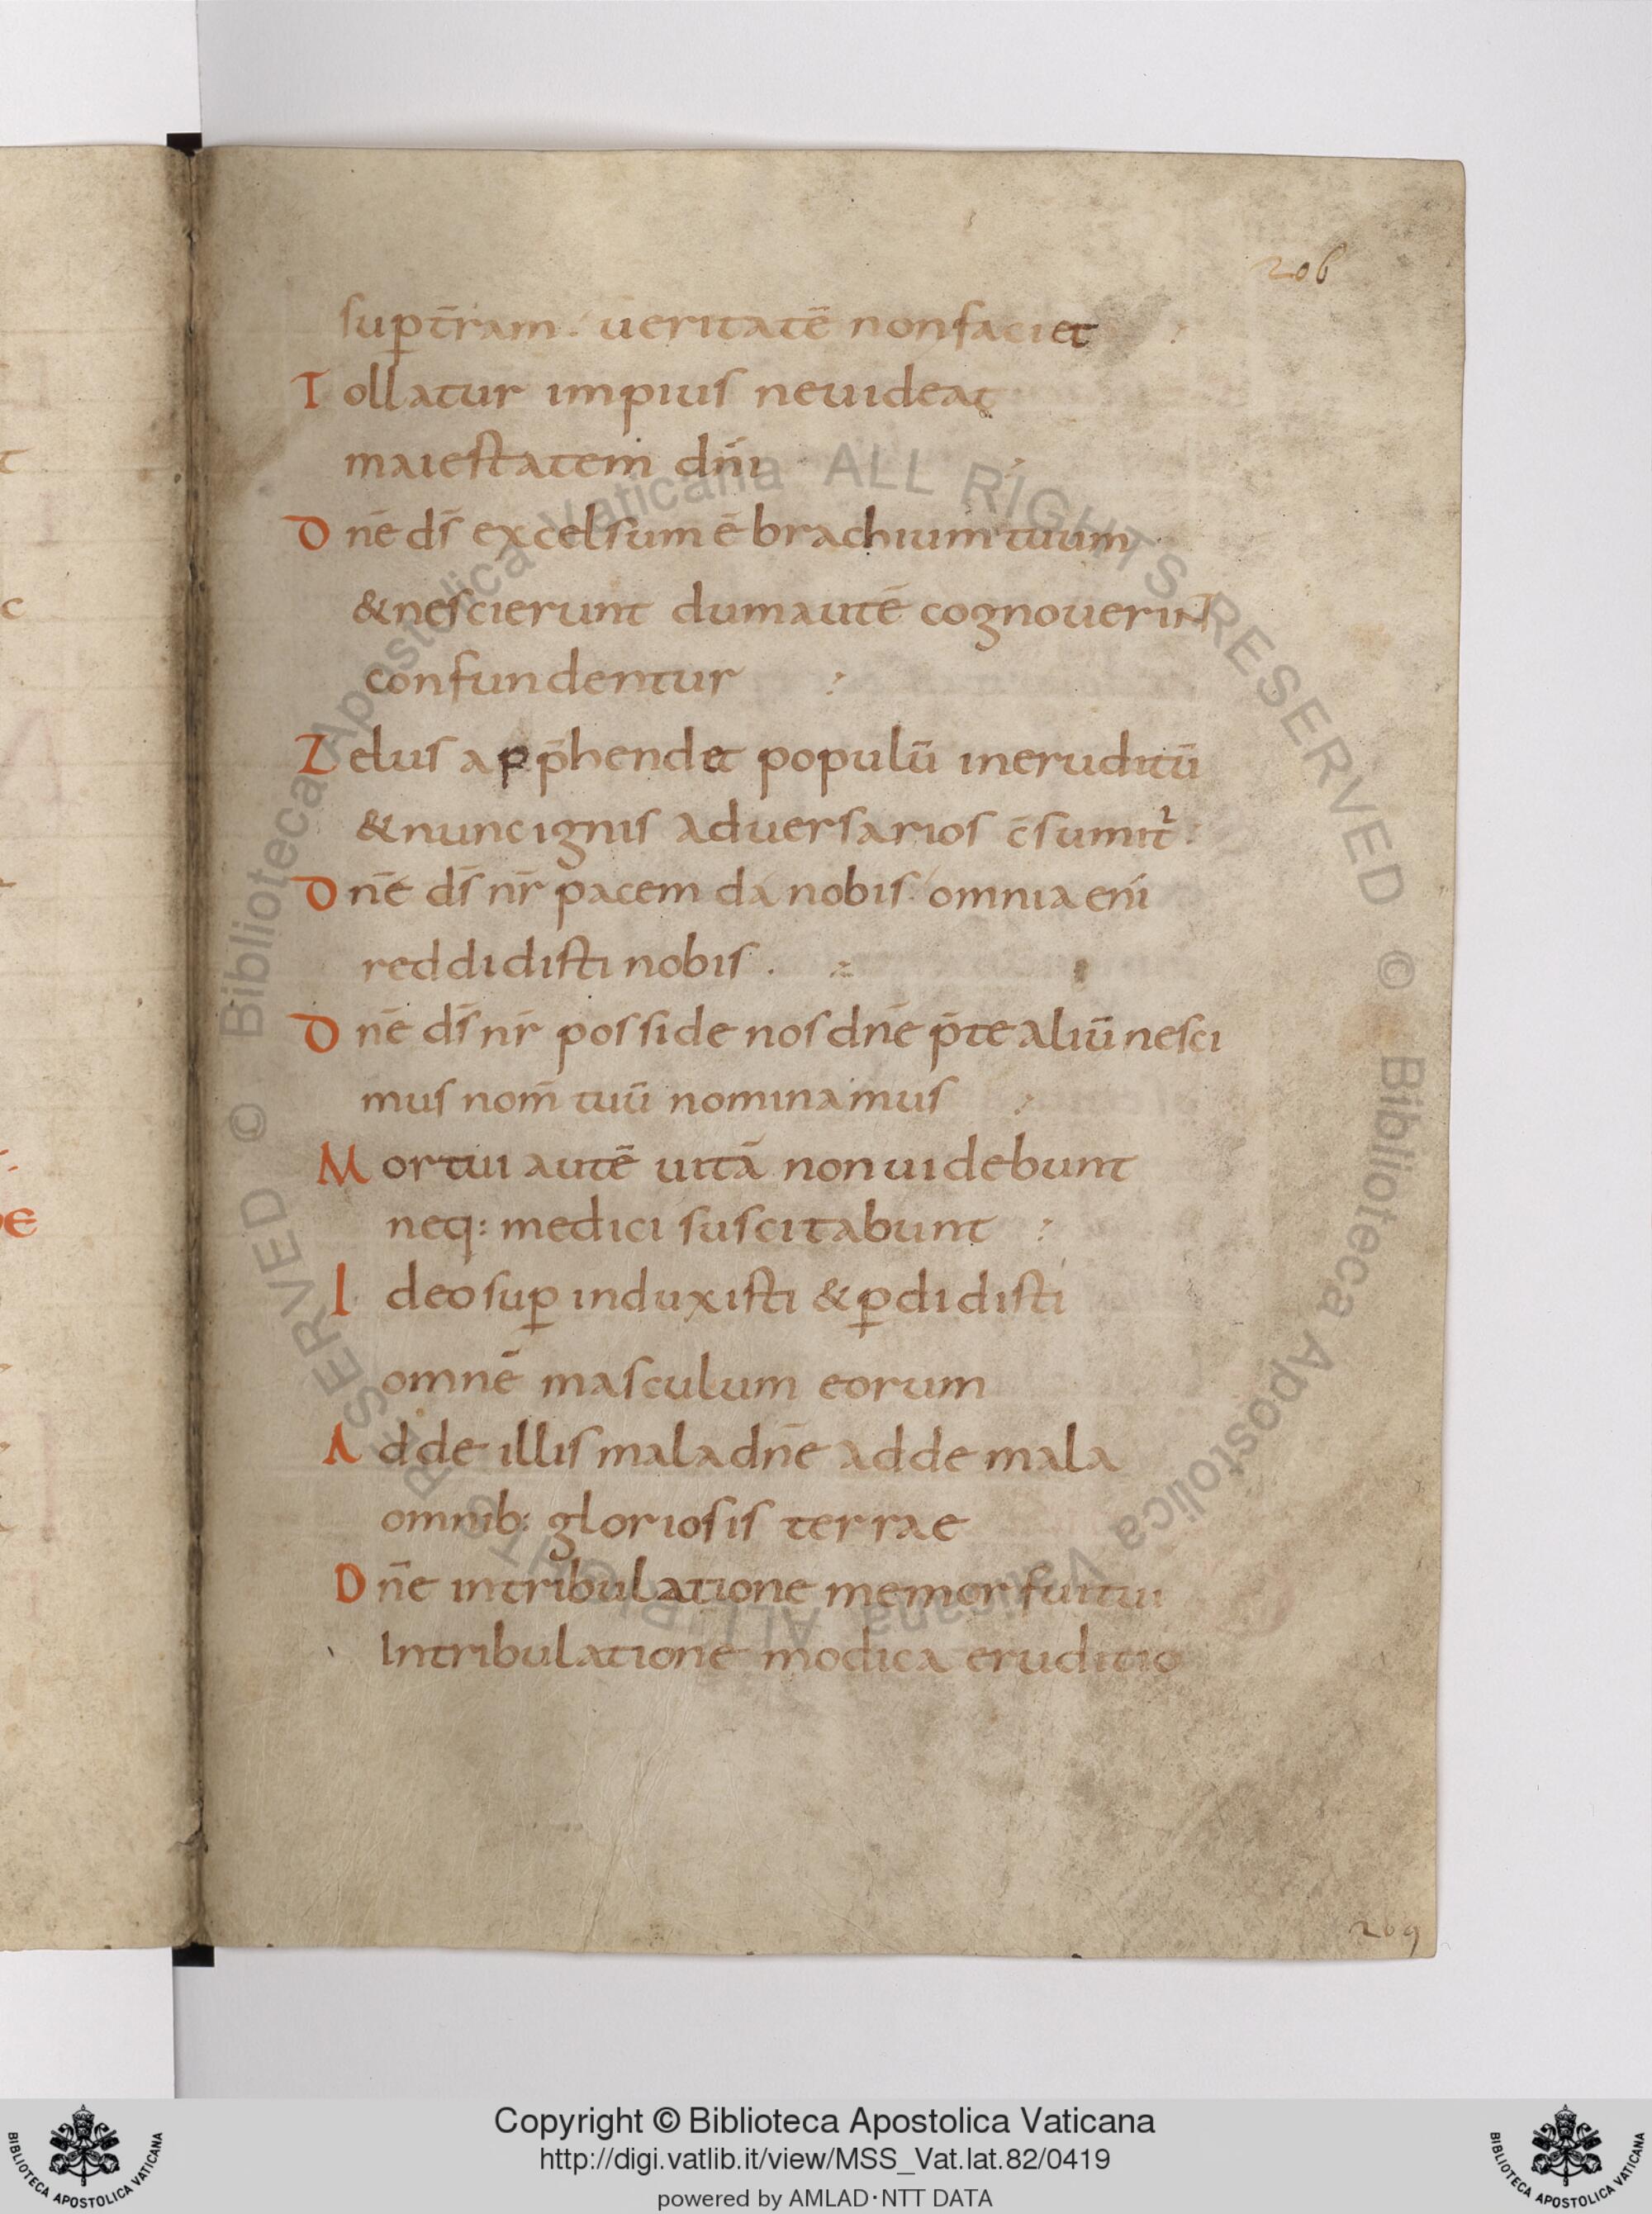 206
sup t̄ram. ueritatē non faciet
Tollatur impius ne uideat
maiestatem dn̄i
Dn̄e ds̄ excelsum ē brachium tuum
& nescierunt dum autē cognouerint
confundentur
Zelus appr̄hendet populū ineruditū
& nunc ignis aduersarios c̄sumit᷑
Dn̄e ds̄ nr̄ pacem da nobis. omnia eni
reddidisti nobis.
Dn̄e ds̄ nr̄ posside nos dn̄e p̄ te aliū nesci
mus nom̄ tuū nominamus
Mortui autē uitā non uidebunt
neq: medici suscitabunt
Ideo sup̱ induxisti & p̱didisti
omnē masculum eorum
Adde illis mala dn̄e adde mala
omnib: gloriosis terrae
Dn̄e in tribulatione memor fui tui
In tribulatione modica eruditio
269
© Biblioteca Apostolica Vaticana ALL RIGHTS RESERVED
© Biblioteca Apostolica Vaticana ALL RIGHTS RESERVED
Copyright © Biblioteca Apostolica Vaticana
http://digi.vatlib.it/view/MSS_Vat.lat.82/0419
powered by AMLAD·NTT DATA
BIBLIOTECA APOSTOLICA VATICANA
BIBLIOTECA APOSTOLICA VATICANA